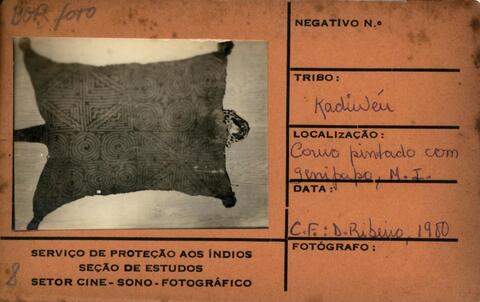 BOR foto
NEGATIVO N.º
TRIBO:
Kadiwéu
LOCALIZAÇÃO:
Couro pintado com
genipapo, M.I.
DATA:
C.F.: D. Ribeiro, 1980
FOTÓGRAFO:
SERVIÇO DE PROTEÇÃO AOS ÍNDIOS
SEÇÃO DE ESTUDOS
SETOR CINE-SONO-FOTOGRÁFICO
8